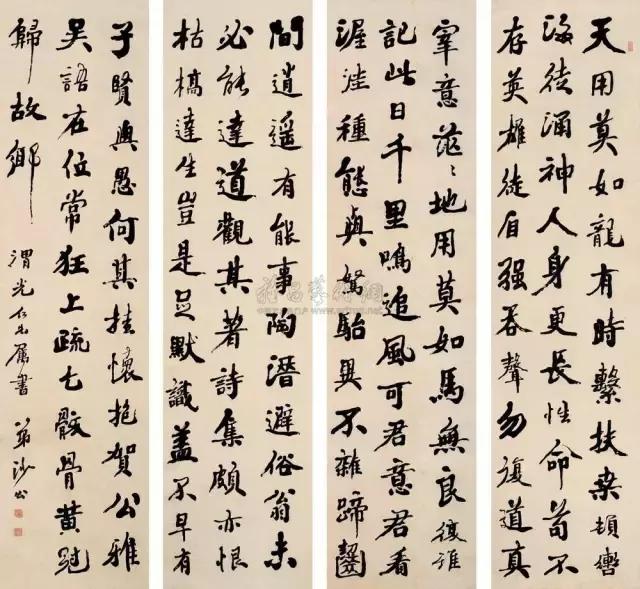 天用莫如龍有時繫扶桒頓轡
海徒涌神人身更長性命苟不
存英雄徒自强吞聲勿復道真
宰意茫〻地用莫如馬無良復誰
記此日千里鳴追風可君意君看
渥洼種態與駑駘異不雜蹄齧
間逍遥有能事陶潛避俗翁未
必能達道觀其著詩集頗亦恨
枯槁達生豈是足默識盖不早有
子賢與愚何其挂懷抱賀公雅
吳語在位常狂上疏乞骸骨黄冠
歸故鄉
渭光仁兄屬書 弟沙